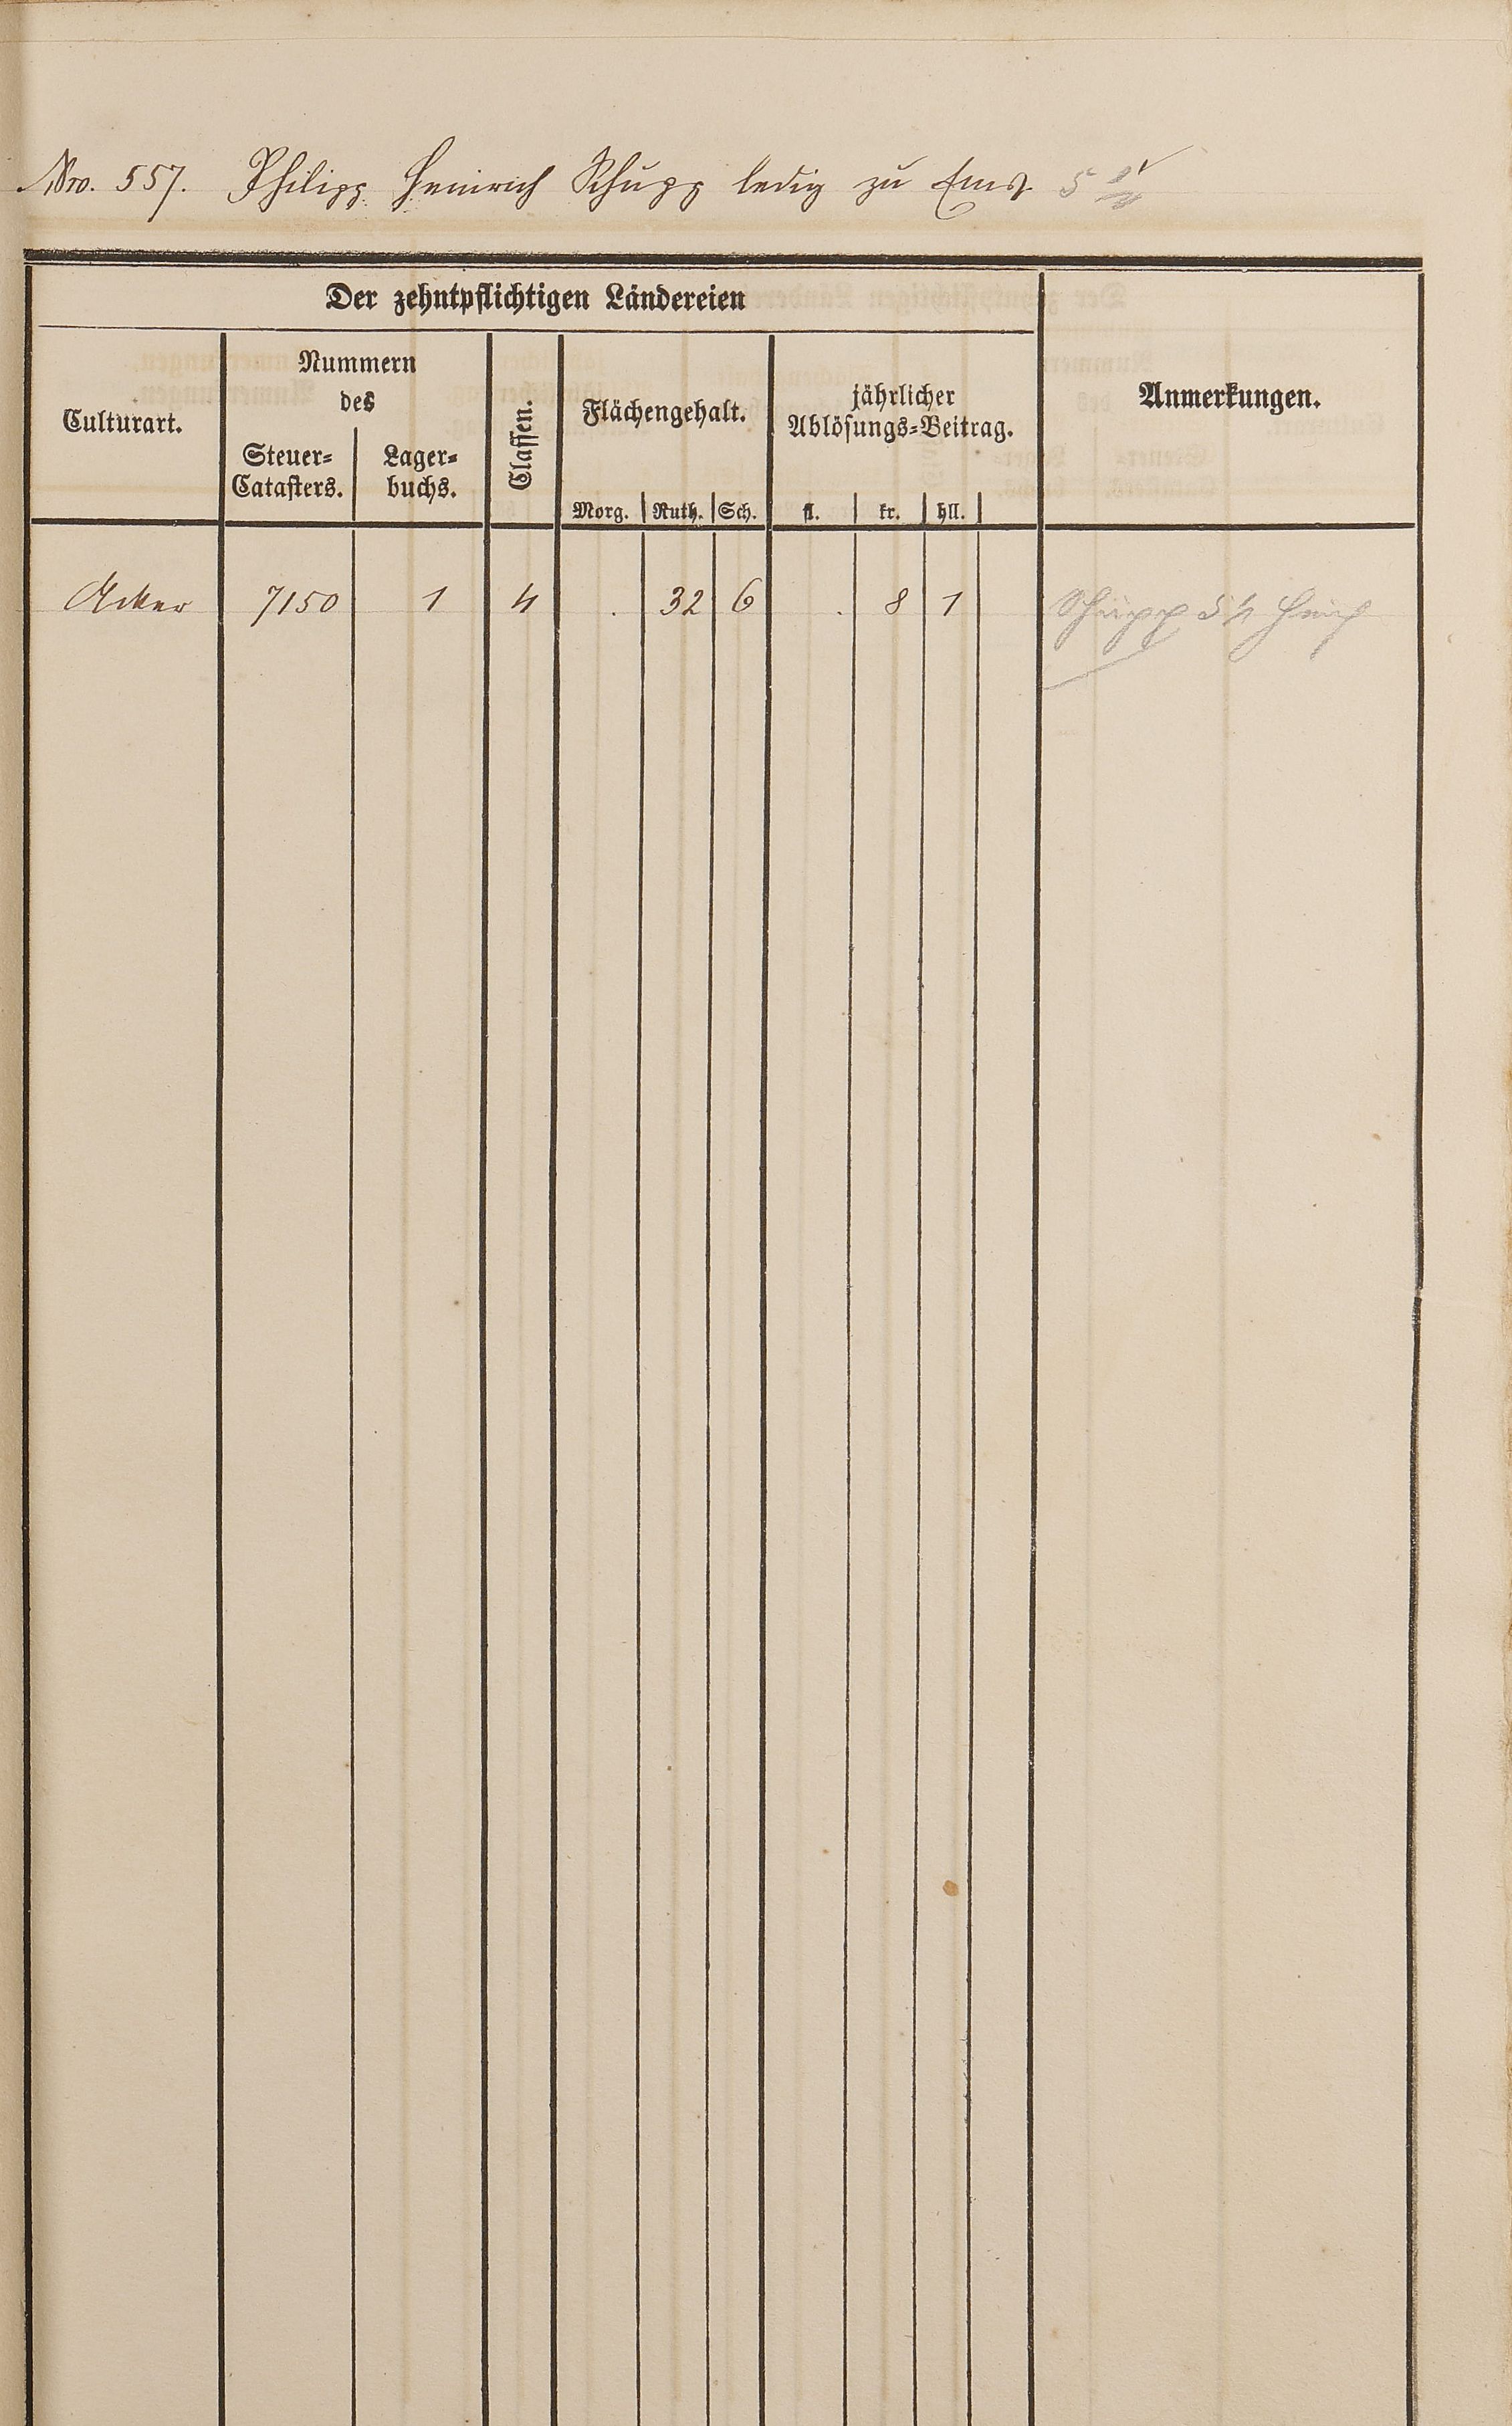 Nro. 557. Philipp Heinrich Schupp ledig zu Ems 5
Der zehntpflichtigen Ländereien
Culturart.
Nummern
des
Steuer=
Catasters.
Lager=
buchs.
Classen.
Flächengehalt.
Morg. Ruth. Sch.
jährlicher
Ablösungs=Beitrag.
fl. kr. hll.
Anmerkungen.
Acker 7150 1 4 . 32 6 . 8 1 Schupp